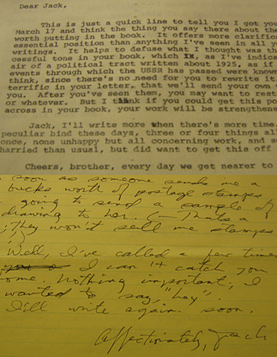 Dear Jack,
This is just a quick line to tell you I got you
March 17 and think the thing you say there about the
worth putting in the book. It offers more clarific
essential position than anything I've seen in all y
writings. It helps to defuse what I thought was th
cessful tone in your book, which is, as I've indica
air of a political tract written about 1935, as if
events through which the USSR has passed were known
think, since there's no need for you to rewrite it
terrific in your letter, that we'll send your own
you. After you've seen them, you may want to rest
or whatever. But I think if you could get this po
across in your book, your work will be strengthene
Jack, I'll write more when there's more time.
peculiar bind these days, three or four things all
once, none unhappy but all concerning work, and so
harried than usual, but did want to get this off
Cheers, brother, every day we get nearer to
soon as someone sends me a
bucks worth of postage stamps
going to send a sample of
drawing to her. (Thats a
; they won't sell me stamps
Well, I've called a few times
I can't catch you
ome. Nothing important, I
wanted to say "hey".
I'll write again soon.
Affectionately, Jack